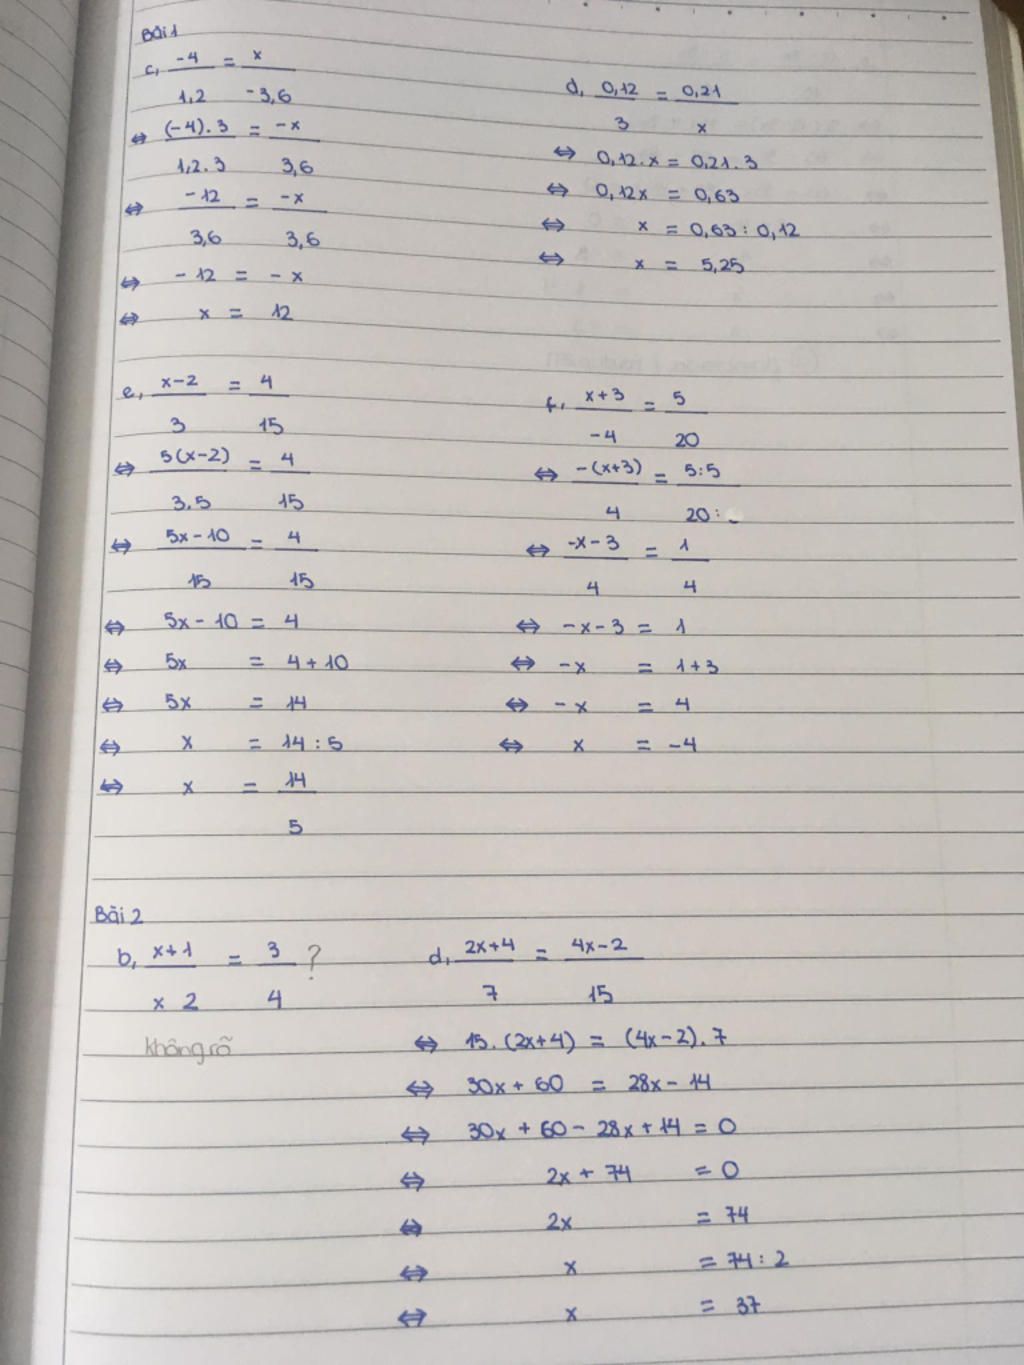 Bài 1
c, -4/1,2 = x/-3,6
⇔ (-4).3/1,2.3 = -x/3,6
⇔ -12/3,6 = -x/3,6
⇔ -12 = -x
⇔ x = 12
d, 0,12/3 = 0,21/x
⇔ 0,12.x = 0,21.3
⇔ 0,12x = 0,63
⇔ x = 0,63 : 0,12
⇔ x = 5,25
e, x-2/3 = 4/15
⇔ 5(x-2)/3.5 = 4/15
⇔ 5x-10/15 = 4/15
⇔ 5x-10 = 4
⇔ 5x = 4+10
⇔ 5x = 14
⇔ x = 14:5
⇔ x = 14/5
f, x+3/-4 = 5/20
⇔ -(x+3)/4 = 5:5/20:
⇔ -x-3/4 = 1/4
⇔ -x-3 = 1
⇔ -x = 1+3
⇔ -x = 4
⇔ x = -4
Bài 2
b, x+1/x 2 = 3/4 ?
không rõ
d, 2x+4/7 = 4x-2/15
⇔ 15.(2x+4) = (4x-2).7
⇔ 30x+60 = 28x-14
⇔ 30x+60-28x+14 = 0
⇔ 2x+74 = 0
⇔ 2x = 74
⇔ x = 74:2
⇔ x = 37